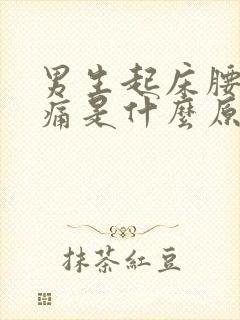 男生起床腰
痛是什麼原
抹茶紅豆